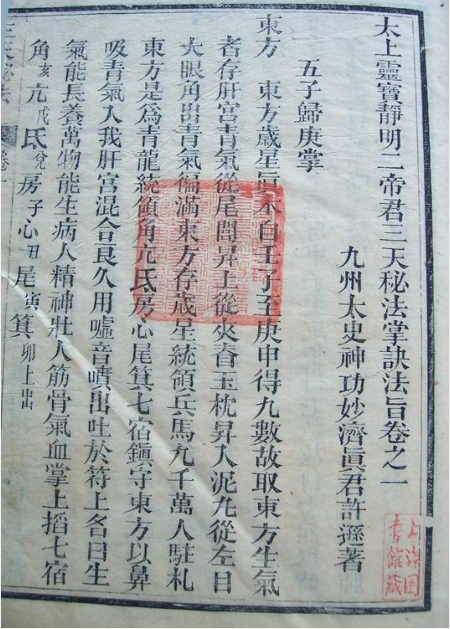 太上靈寶靜明二帝君三天秘法掌訣法旨卷之一
九州太史神功妙濟眞君許遜著
五子歸庚掌
東方　東方歲星眞木自壬子至庚申得九數故取東方生氣
者存肝宮青氣從尾閭昇上從夾脊玉枕昇入泥九從左日
大眼角出青氣徧滿東方存歲星統領兵馬九千萬人駐札
東方是爲青龍統領角亢氐房心尾箕七宿鎭守東方以鼻
吸青氣入我肝宮混合良久用噓音噴出吐於符上各曰生
氣能長養萬物能生病人精神壯人筋骨氣血掌上搯七宿
角亥亢戌氐兌房子心丑尾寅箕卯上出
上海图
書館藏